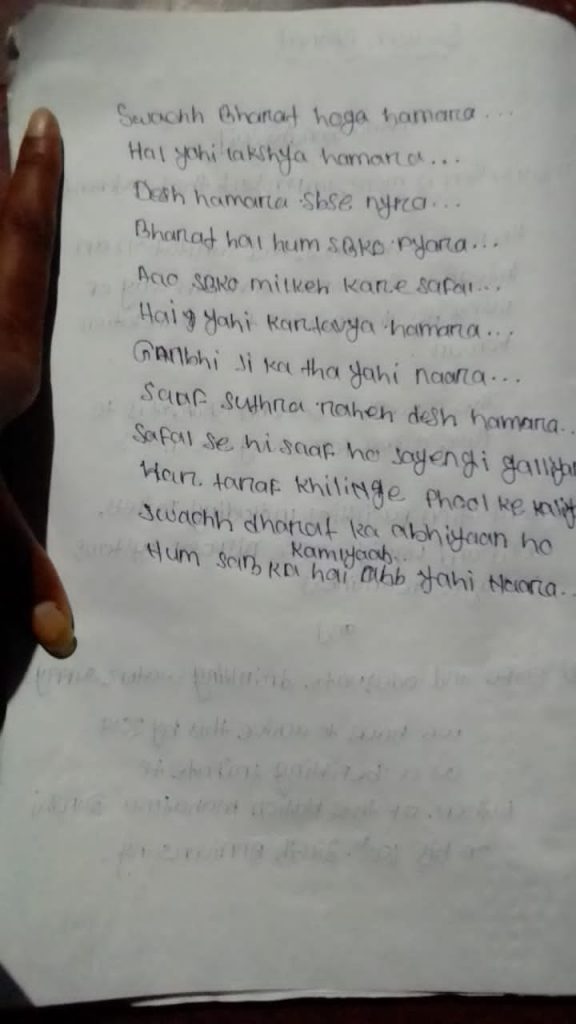 Swachh Bharat hoga hamara...
Hai yahi lakshya hamara...
Desh hamara sbse nyra...
Bharat hai hum sbko pyara...
Aao sbko milkeh kare safai...
Hai yahi kartavya hamara...
Gandhi ji ka tha yahi naara...
Saaf suthra raheh desh hamara..
Safai se hi saaf ho jayengi galliyan
Har taraf khilinge phool ke
Swachh Bharat ka abhiyaan ho
kamiyaab..
Hum sab ka hai abb yahi Naara..